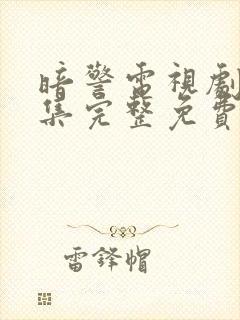 暗警電視劇
集完整免費
雷鋒帽